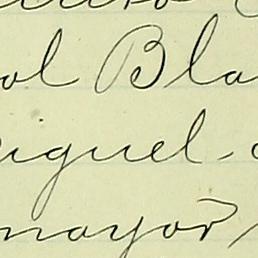 ol Bla
iguel
mayor